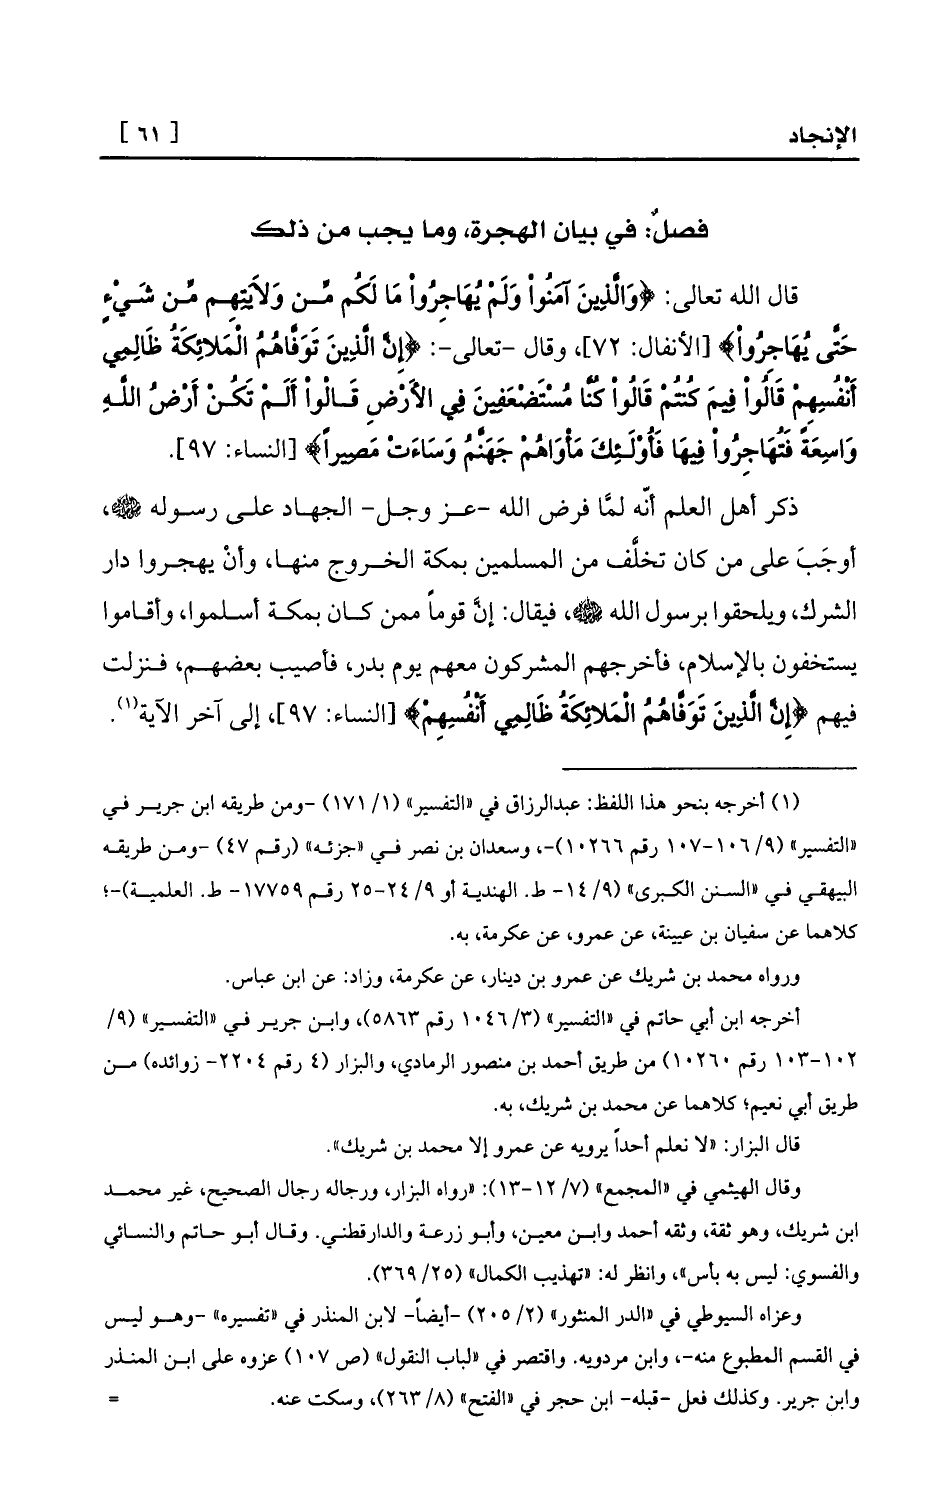 الإنجاد [ ٦١ ]
فصلٌ: في بيان الهجرة، وما يجب من ذلك
قال الله تعالى: ﴿وَالَّذِينَ آمَنُواْ وَلَمْ يُهَاجِرُواْ مَا لَكُم مِّن وَلاَيَتِهِم مِّن شَيْءٍ
حَتَّى يُهَاجِرُواْ﴾ [الأنفال: ٧٢]، وقال -تعالى-: ﴿إِنَّ الَّذِينَ تَوَفَّاهُمُ الْمَلائِكَةُ ظَالِمِي
أَنْفُسِهِمْ قَالُواْ فِيمَ كُنتُمْ قَالُواْ كُنَّا مُسْتَضْعَفِينَ فِي الأَرْضِ قَالُواْ أَلَمْ تَكُنْ أَرْضُ اللَّهِ
وَاسِعَةً فَتُهَاجِرُواْ فِيهَا فَأُوْلَئِكَ مَأْوَاهُمْ جَهَنَّمُ وَسَاءَتْ مَصِيراً﴾ [النساء: ٩٧].
ذكر أهل العلم أنّه لمَّا فرض الله -عز وجل- الجهاد على رسوله ﷺ،
أوجَبَ على من كان تخلَّف من المسلمين بمكة الخروج منها، وأنْ يهجروا دار
الشرك، ويلحقوا برسول الله ﷺ، فيقال: إنَّ قوماً ممن كان بمكة أسلموا، وأقاموا
يستخفون بالإسلام، فأخرجهم المشركون معهم يوم بدر، فأصيب بعضهم، فنزلت
فيهم ﴿إِنَّ الَّذِينَ تَوَفَّاهُمُ الْمَلائِكَةُ ظَالِمِي أَنْفُسِهِمْ﴾ [النساء: ٩٧]، إلى آخر الآية(١).
(١) أخرجه بنحو هذا اللفظ: عبدالرزاق في «التفسير» (١/ ١٧١) -ومن طريقه ابن جرير في
«التفسير» (٩/ ١٠٦-١٠٧ رقم ١٠٢٦٦)-، وسعدان بن نصر في «جزئه» (رقم ٤٧) -ومن طريقه
البيهقي في «السنن الكبرى» (٩/ ١٤- ط. الهندية أو ٩/ ٢٤-٢٥ رقم ١٧٧٥٩- ط. العلمية)-؛
كلاهما عن سفيان بن عيينة، عن عمرو، عن عكرمة، به.
ورواه محمد بن شريك عن عمرو بن دينار، عن عكرمة، وزاد: عن ابن عباس.
أخرجه ابن أبي حاتم في «التفسير» (٣/ ١٠٤٦ رقم ٥٨٦٣)، وابن جرير في «التفسير» (٩/
١٠٢-١٠٣ رقم ١٠٢٦٠) من طريق أحمد بن منصور الرمادي، والبزار (٤ رقم ٢٢٠٤- زوائده) من
طريق أبي نعيم؛ كلاهما عن محمد بن شريك، به.
قال البزار: «لا نعلم أحداً يرويه عن عمرو إلا محمد بن شريك».
وقال الهيثمي في «المجمع» (٧/ ١٢-١٣): «رواه البزار، ورجاله رجال الصحيح، غير محمد
ابن شريك، وهو ثقة، وثقه أحمد وابن معين، وأبو زرعة والدارقطني. وقال أبو حاتم والنسائي
والفسوي: ليس به بأس»، وانظر له: «تهذيب الكمال» (٢٥/ ٣٦٩).
وعزاه السيوطي في «الدر المنثور» (٢/ ٢٠٥) -أيضاً- لابن المنذر في «تفسيره» -وهو ليس
في القسم المطبوع منه-، وابن مردويه. واقتصر في «لباب النقول» (ص ١٠٧) عزوه على ابن المنذر
وابن جرير. وكذلك فعل -قبله- ابن حجر في «الفتح» (٨/ ٢٦٣)، وسكت عنه. =